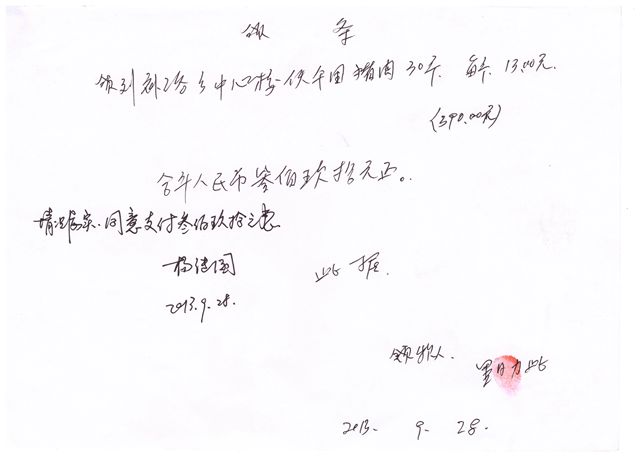 领 条
领到 乡中心校 猪肉30斤、每斤13.00元。
(390.00元)
合计人民币叁佰玖拾元正。
情况属实、同意支付叁佰玖拾元正
杨 国
2013.9.28.
此据.
领款人.
日力
2013. 9. 28.